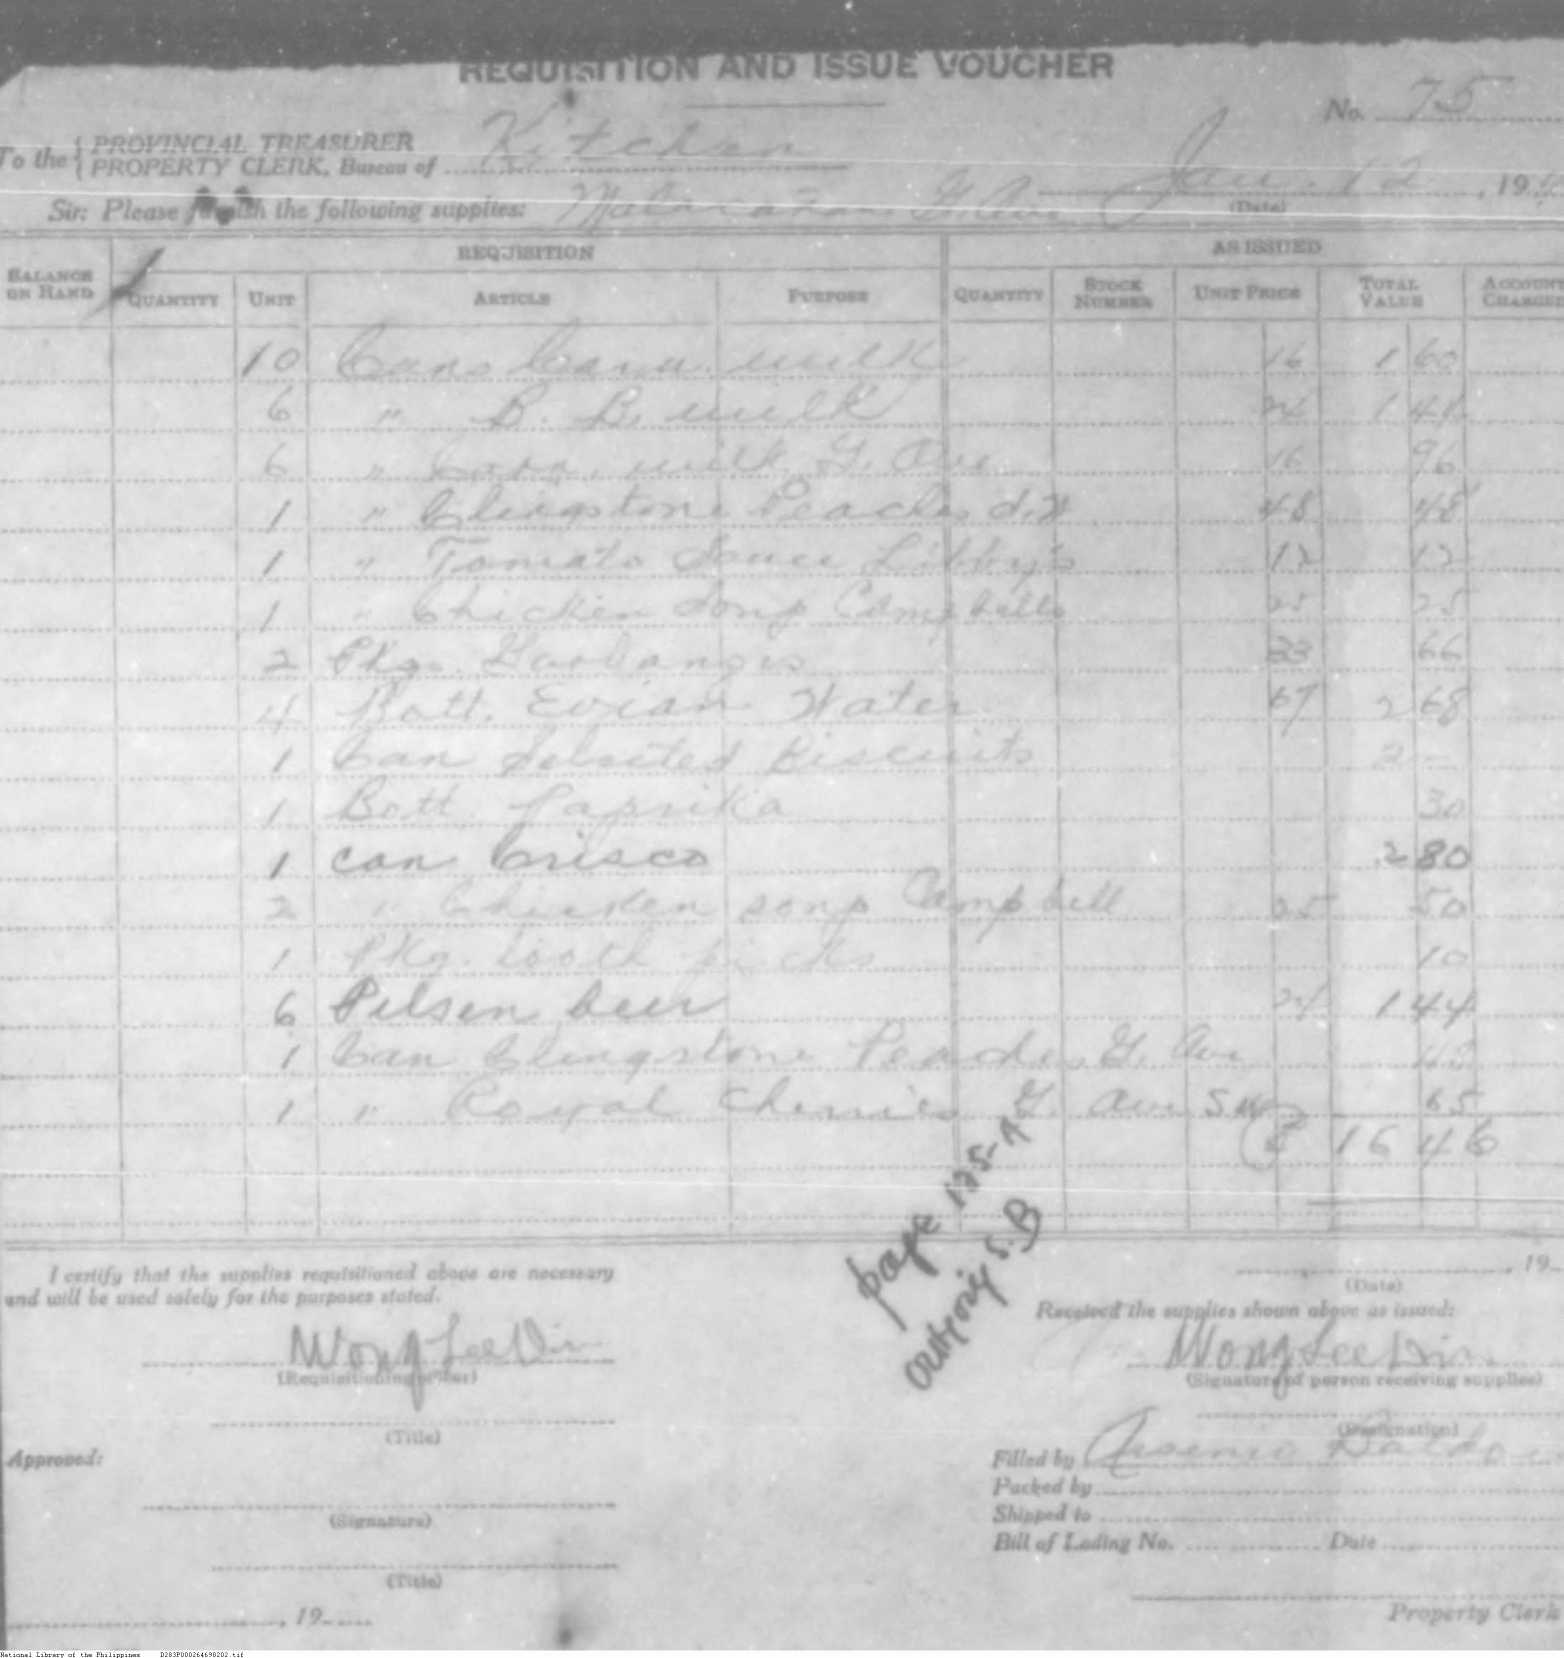 REQUISITION AND ISSUE VOUCHER
No. 75
To the { PROVINCIAL TREASURER
PROPERTY CLERK, Bureau of Kitchen
Jan. 12, 19
(Date)
Sir: Please furnish the following supplies: Malacañan
REQUISITION AS ISSUED
BALANCE ON HAND QUANTITY UNIT ARTICLE PURPOSE QUANTITY STOCK NUMBER UNIT PRICE TOTAL VALUE ACCOUNT CHARGED
10 Cans Carn. milk 16 1 60
6 " B. B. milk 24 1 44
6 " Carn. milk G. Ave 16 96
1 " Clingstone Peaches 48 48
1 " Tomato Sauce Libby's 12 12
1 " Chicken Soup Campbells 25 25
2 Pkgs. 33 66
4 Bott. Evian Water 67 2 68
1 Can Selected Biscuits 2 -
1 Bott. Paprika 30
1 can Crisco 2 80
2 " Chicken soup Campbell 25 50
1 Pkg. tooth picks 10
6 Pilsen beer 24 1 44
1 Can Clingstone Peaches G. Ave 48
1 " Royal Cherries G. Ave 65
16 46
page 125-A
S. B
I certify that the supplies requisitioned above are necessary
and will be used solely for the purposes stated.
, 19
(Date)
Received the supplies shown above as issued:
Wong Lee Din
(Requisitioning officer)
Wong Lee Din
(Signature of person receiving supplies)
(Title)
(Designation)
Approved:
Filled by Arsenio
Packed by
Shipped to
(Signature)
Bill of Lading No. Date
(Title)
, 19
Property Clerk
National Library of the Philippines D283P000264698202.tif